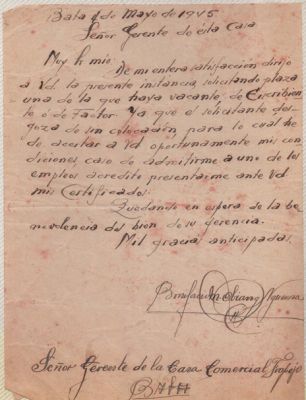 Bata 4 de Mayo de 1945
Señor Gerente de esta Casa
Muy Sr mio:
De mi entera satisfacción dirijo
a Vd. la presente instancia, solicitando plaza
una de la que haya vacante, de Escribien
te ó de Factor. Ya que el solicitante des-
goza de sin colocación, para lo cual he
de acectar a Vd oportunamente mis con
diciones, caso de admitirme a uno de los
empleos acredito presentarme ante Vd
mis Certificados.
Quedando en espera de la be
nevolencia del bien de su gerencia.
Mil gracias anticipadas
Bonifacio M. Obiang
Señor Gerente de la Casa Comercial, Trapejo
BATA